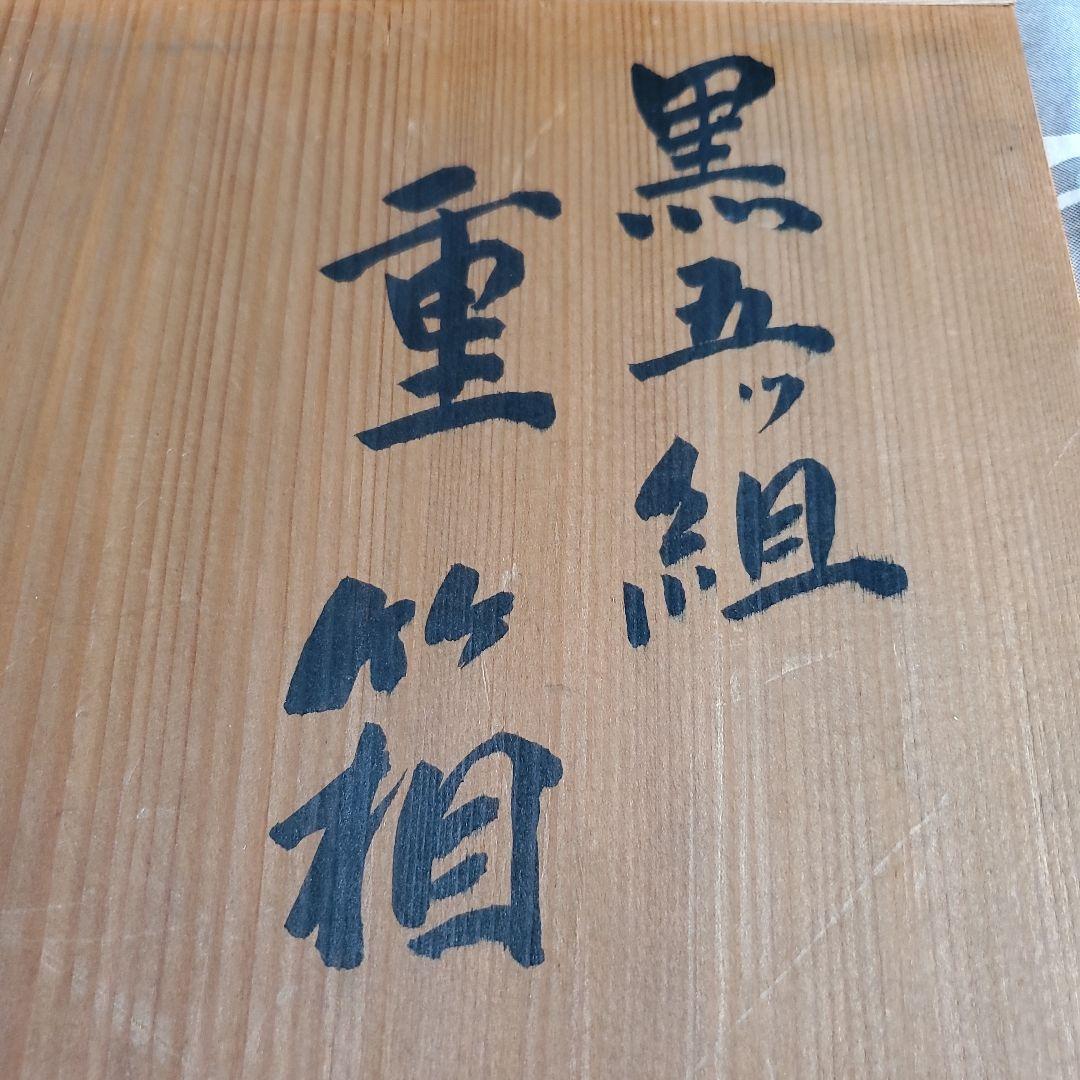 黒五ッ組
重箱